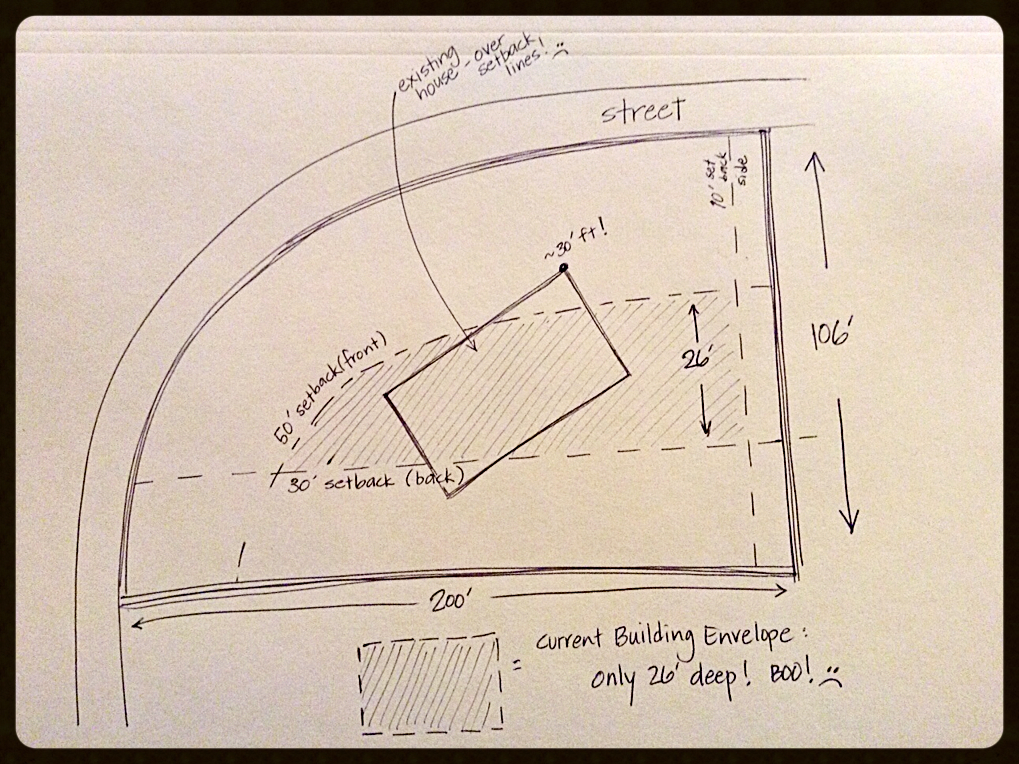 existing
house - over
setback
lines!
street
10' set
back
side
~30' ft!
50' setback (front)
26'
106'
30' setback (back)
200'
= current Building Envelope:
only 26' deep! BOO!